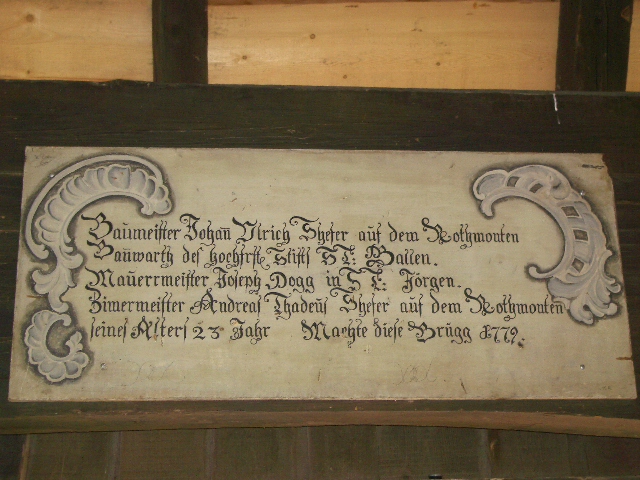 Baumeister Johan Ulrich Shefer auf dem Rothmonten
Bauwarth des hochfrstl Stifts St: Gallen.
Mauerrmeister Joseph Dogg in St: Jörgen.
Zimermeister Andreas Thadeus Shefer auf dem Rothmonten
seines Alters 23 Jahr Machte diese Brügg 1779.